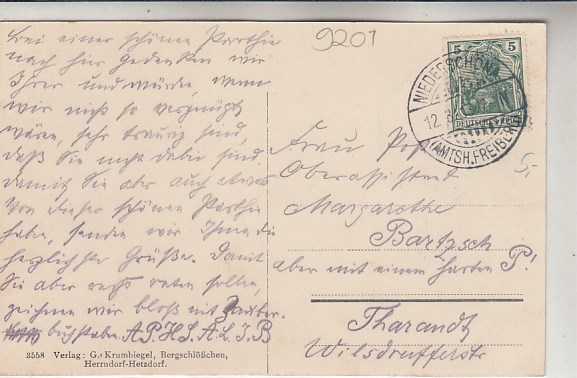 Bei einer schönen Parthie
nach hier gedenken wir
Ihrer und würden, wenn
wir nicht so vergnügt
wären, sehr traurig sind,
daß Sie nicht dabei sind.
Damit Sie aber auch etwas
von dieser schönen Parthie
haben, senden wir Ihnen die
herzlichste Grüße. Damit
Sie aber recht raten sollen,
zeichnen wir bloß mit
buchstaben. A.P.H.S.A.L.J.B
3558 Verlag: G. Krumbiegel, Bergschlößchen,
Herrndorf-Hetzdorf.
9201
5 5
DEUTSCHES REICH
NIEDERSCHÖNA
12.
(AMTSH. FREIBERG)
5,-
Frau Post
Oberassistent
Margarethe
Bartzsch
aber mit einem harten P!
Tharandt
Wilsdrufferstr